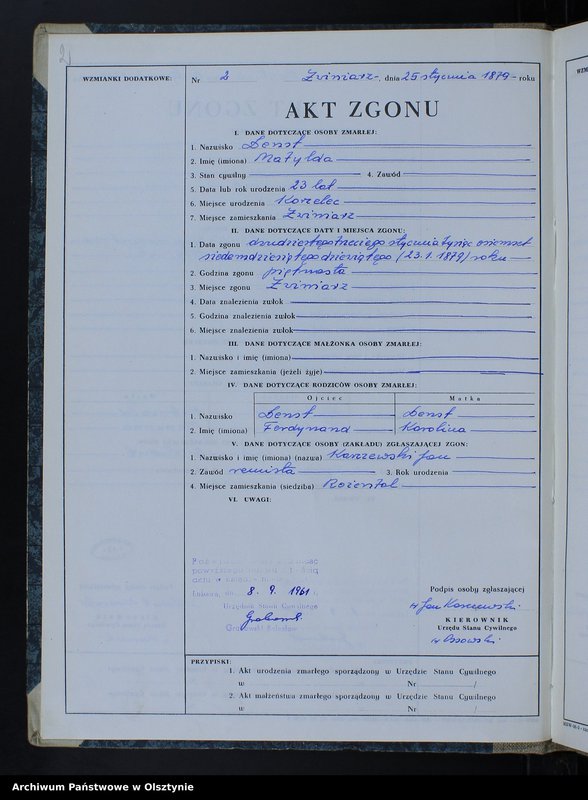 2
WZMIANKI DODATKOWE:
Nr 2 Zwiniarz, dnia 25 stycznia 1879 roku
AKT ZGONU
I. DANE DOTYCZĄCE OSOBY ZMARŁEJ:
1. Nazwisko Denst
2. Imię (imiona) Matylda
3. Stan cywilny 4. Zawód
5. Data lub rok urodzenia 23 lat
6. Miejsce urodzenia Korzelec
7. Miejsce zamieszkania Zwiniarz
II. DANE DOTYCZĄCE DATY I MIEJSCA ZGONU:
1. Data zgonu dwudziestegotrzeciego stycznia tysiąc osiemset
siedemdziesiątego dziewiątego (23.1.1879) roku
2. Godzina zgonu piętnasta
3. Miejsce zgonu Zwiniarz
4. Data znalezienia zwłok
5. Godzina znalezienia zwłok
6. Miejsce znalezienia zwłok
III. DANE DOTYCZĄCE MAŁŻONKA OSOBY ZMARŁEJ:
1. Nazwisko i imię (imiona)
2. Miejsce zamieszkania (jeżeli żyje)
IV. DANE DOTYCZĄCE RODZICÓW OSOBY ZMARŁEJ:
Ojciec Matka
1. Nazwisko Denst Denst
2. Imię (imiona) Ferdynand Karolina
V. DANE DOTYCZĄCE OSOBY (ZAKŁADU) ZGŁASZAJĄCEJ ZGON:
1. Nazwisko i imię (imiona) (nazwa) Karczewski Jan
2. Zawód 3. Rok urodzenia
4. Miejsce zamieszkania (siedziba) Rożental
VI. UWAGI:
Lubawa, dn. 8. 9. 1961 r.
Urzędnik Stanu Cywilnego
Podpis osoby zgłaszającej
Jan Karczewski
KIEROWNIK
Urzędu Stanu Cywilnego
Ossowski
PRZYPISKI:
1. Akt urodzenia zmarłego sporządzony w Urzędzie Stanu Cywilnego
w Nr /
2. Akt małżeństwa zmarłego sporządzony w Urzędzie Stanu Cywilnego
w Nr /
Archiwum Państwowe w Olsztynie